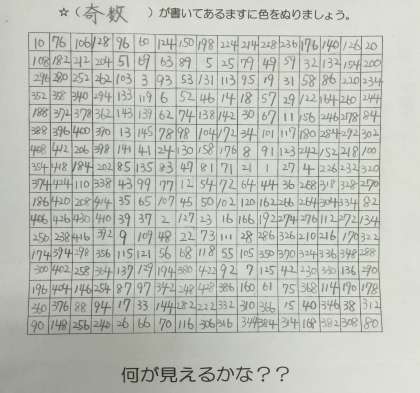 ☆（奇数）が書いてあるますに色をぬりましょう。
10 76 106 128 96 60 124 150 198 224 214 228 236 176 140 126 20
108 182 212 204 51 69 63 89 5 25 79 49 57 32 132 154 200
296 280 252 262 103 3 93 53 131 113 95 19 31 58 86 220 234
352 358 340 294 133 119 6 52 46 14 18 57 29 122 164 260 244
188 372 378 362 143 139 62 74 138 142 30 67 11 156 246 278 84
388 396 400 390 13 145 78 98 104 172 34 101 117 180 284 292 302
408 412 206 398 141 41 24 130 158 176 8 91 123 242 152 218 100
354 418 184 202 85 135 83 47 81 71 21 1 27 4 226 232 320
374 424 110 338 43 99 77 12 54 72 64 44 36 268 318 328 270
186 420 208 414 35 65 107 45 50 102 120 162 266 264 304 334 82
406 426 430 410 39 37 2 127 23 16 166 192 274 276 112 272 134
250 238 416 392 9 109 48 22 73 111 28 286 326 210 216 170 322
174 394 298 356 115 121 56 68 118 55 105 350 370 324 336 348 288
300 402 258 364 137 129 194 380 422 92 7 125 42 230 330 136 290
196 404 146 254 87 97 342 248 428 386 160 61 75 368 114 190 178
360 376 88 94 17 33 144 282 222 332 310 366 15 40 346 38 312
90 148 256 240 26 66 70 116 306 316 344 384 314 168 382 308 80
何が見えるかな？？